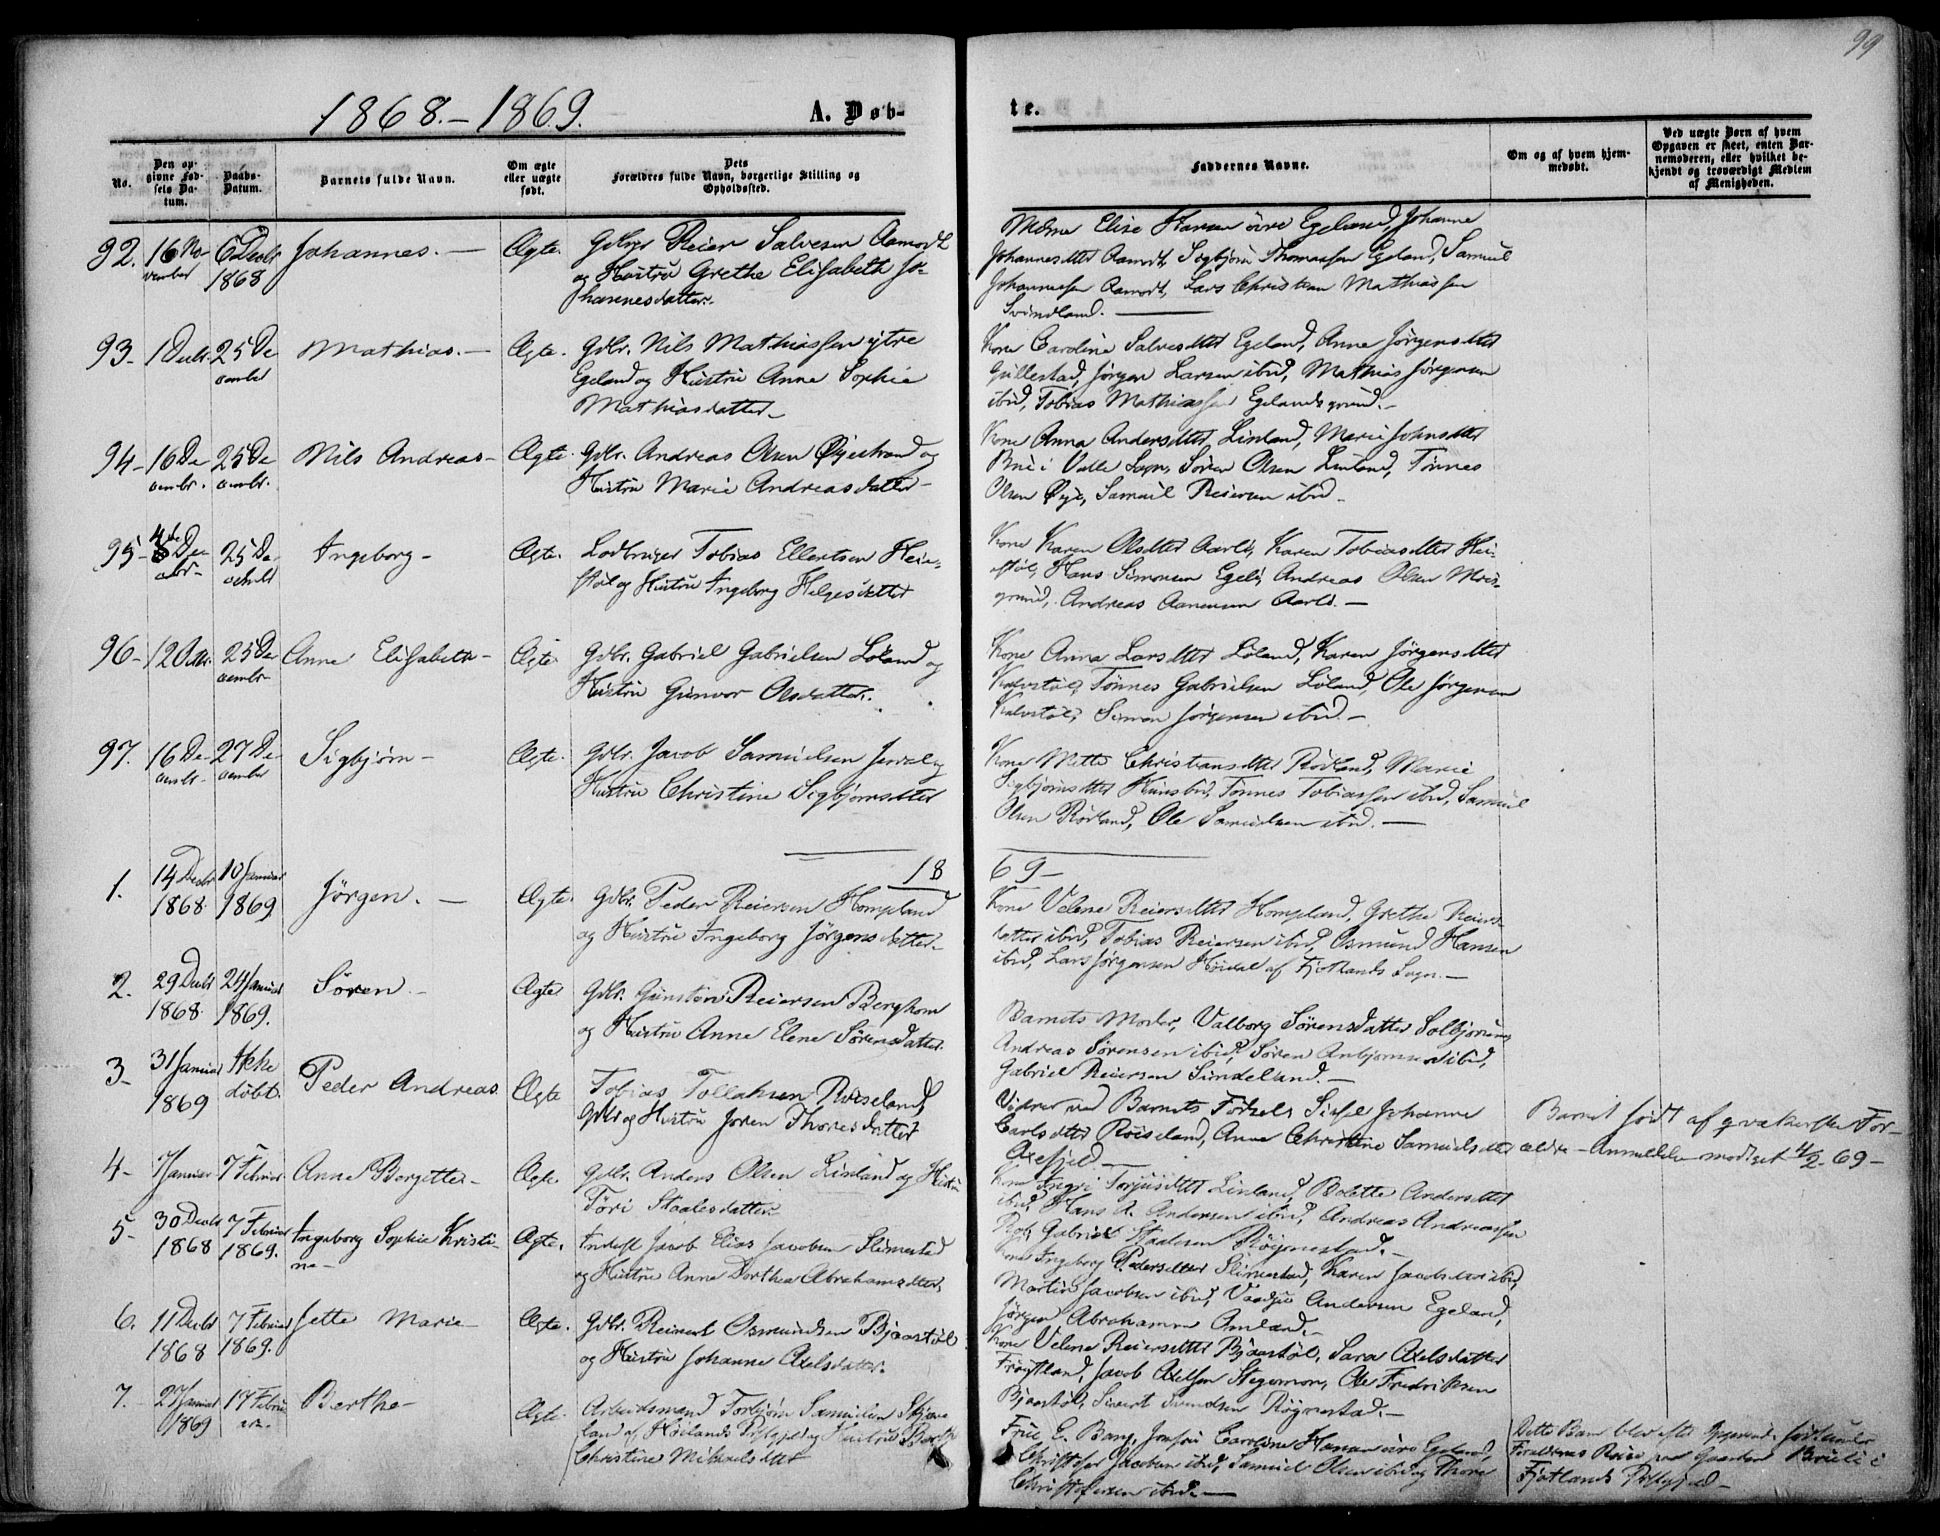 99
1868.-1869.
A. Døb-
te.
No.
Den op-
givne Fød-
sels Da-
tum.
Daabs-
Datum.
Barnets fulde Navn.
Om ægte
eller uægte
født.
Dets
Forældres fulde Navn, borgerlige Stilling og
Opholdssted.
Faddernes Navne.
Om og af hvem hjem-
medøbt.
Ved uægte Børn af hvem
Opgaven er skeet, enten Bar-
nemoderen, eller hvilket be-
kjendt og troværdigt Medlem
af Menigheden.
92. 16 No- 6 Decbr Johannes. — Ægte. Reier Salvesen Aamodt
vember 1868 og Hustru Grethe Elisabeth Jo-
hannesdatter.
Elise Hansen øvre Egeland, Johanne
Johannesdtter Aamodt, Sigbjørn Thomassen Egeland, Samuel
Johannesen Aamodt, Lars Christian Mathiassen
Svindland. —
93- 1 Decbr. 25 De Mathias. — Ægte. Gdbr. Nils Mathiassen ytre
cember Egeland og Hustru Anne Sophie
Mathiasdatter-
Kone Caroline Salvesdtter Egeland, Anne Jørgensdtter
Gullestad, Jørgen Larsen ibid, Mathias Jørgensen
ibid, Tobias Mathiassen Egelandsgrund.-
94- 16 De 25 De Nils Andreas- Ægte. Gdbr. Andreas Olsen Øyestrand og
cembr. cembr. Hustru Marie Andreasdatter-
Kone Anna Andersdtter Linland, Marie Johnsdtter
i Valle Sogn, Søren Olsen Linland, Tønnes
Olsen Øye, Samuel Reiersen ibid-
95- 4de De 25 De Ingeborg- Ægte. Tobias Ellertsen Heie-
cbr- støl og Hustru Ingeborg Helgesdatter
Kone Karen Olsdtter Aarli, Karen Tobiasdtter Hei-
støl, Hans Simonsen Egeli, Andreas Olsen
grund, Andreas Aanensen Aarli. —
96- 12 25 De Anne Elisabeth- Ægte. Gdbr. Gabriel Gabrielsen Løland og
cembr- Hustru Gunvor Olsdatter.
Kone Anna Larsdtter Løland, Karen Jørgensdtter
Kalvstøl, Tønnes Gabrielsen Løland, Ole Jørgensen
Kalvstøl, Simon Jørgensen ibid.-
97. 16 De- 27 De- Sigbjørn- Ægte. Gdbr. Jacob Samuelsen og
cembr- cember Hustru Christine Sigbjørnsdtter
Kone Mette Christiansdtter Rørland, Marie
Sigbjørnsdtter, Tønnes Tobiassen ibid, Samuel
Olsen Rørland, Ole Samuelsen ibid. —
18
69-
1. 14 Decbr 10 Januar Jørgen. — Ægte. Gdbr. Peder Reiersen Hompland
1868. 1869 og Hustru Ingeborg Jørgensdatter-
Kone Velene Reiersdtter Hompland, Grethe Reiers-
datter ibid, Tobias Reiersen ibid, Osmund Hansen
ibid, Lars Jørgensen af Fjotlands Sogn. —
2. 29 Decbr 24 Januar Søren.- Ægte Gdbr. Gunsten Reiersen Berghom
1868. 1869. og Hustru Anne Elene Sørensdatter.
Barnets Moder, Valborg Sørensdatter
Andreas Sørensen ibid, Søren ibid,
Gabriel Reiersen Sindeland.—
3- 31 Januar Ikke Peder Andreas Ægte Tobias Tollaksen Røiseland,
1869 døbt. Gdbr og Hustru Joren Thoresdatter
Vidner ved Barnets Fødsel: Sissel Johanne
Carlsdtter Røiseland, Anne Christine Samuelsdtter

Barnet født af qvækerske For-
ældre - Anmeldelse modtaget 4/2-69-
4- 7 Januar 7 Februar Anne Borgitte- Ægte. Gdbr. Anders Olsen Linland og Hustru
Tori Staalesdatter.
Kone Ingri Torjusdtter Linland, Bolette Andersdtter
ibid, Hans A. Andersen ibid, Andreas Andreassen
Gabriel Staalesen Røynestad.-
5- 30 Decbr 7 Februar Ingeborg Sophie Kristi- Ægte. Inderst Jacob Elias Jacobsen Slimestad
1868 1869. ne- og Hustru Anne Dorthea Abrahamsdtter.
Kone Ingeborg Pedersdtter Slimestad, Karen Jacobsdtter ibid,
Martin Jacobsen ibid, Andersen Egeland,
Jørgen Abrahamsen Omland.-
6. 11 Decbr 7 Februar Jette Marie- Ægte. Gdbr. Reinert Osmundsen Bjaastøl
1868 1869. og Hustru Johanne Axelsdatter.
Kone Velene Reiersdtter Bjaastøl, Sara Axelsdatter
Jacob Axelsen Stegemoen, Ole Fredriksen
Bjaastøl, Sivert Svendsen Røynestad.-
7. 27 Januar 17 Februar Berthe- Ægte. Arbeidsmand Torbjørn Samuelsen
1869
land af Høilands Præstegjeld og Hustru Berthe
Christine Mikaelsdtter
Frue E. Bang, Jomfru Caroline Hansen øvre Egeland,
Christopher Jacobsen ibid, Samuel Olsen ibid og Thore
Christophersen ibid.—
Dette Barn blev efter født under
Forældrenes Reise paa Gaarden i
Fjotlands Præstegjeld-